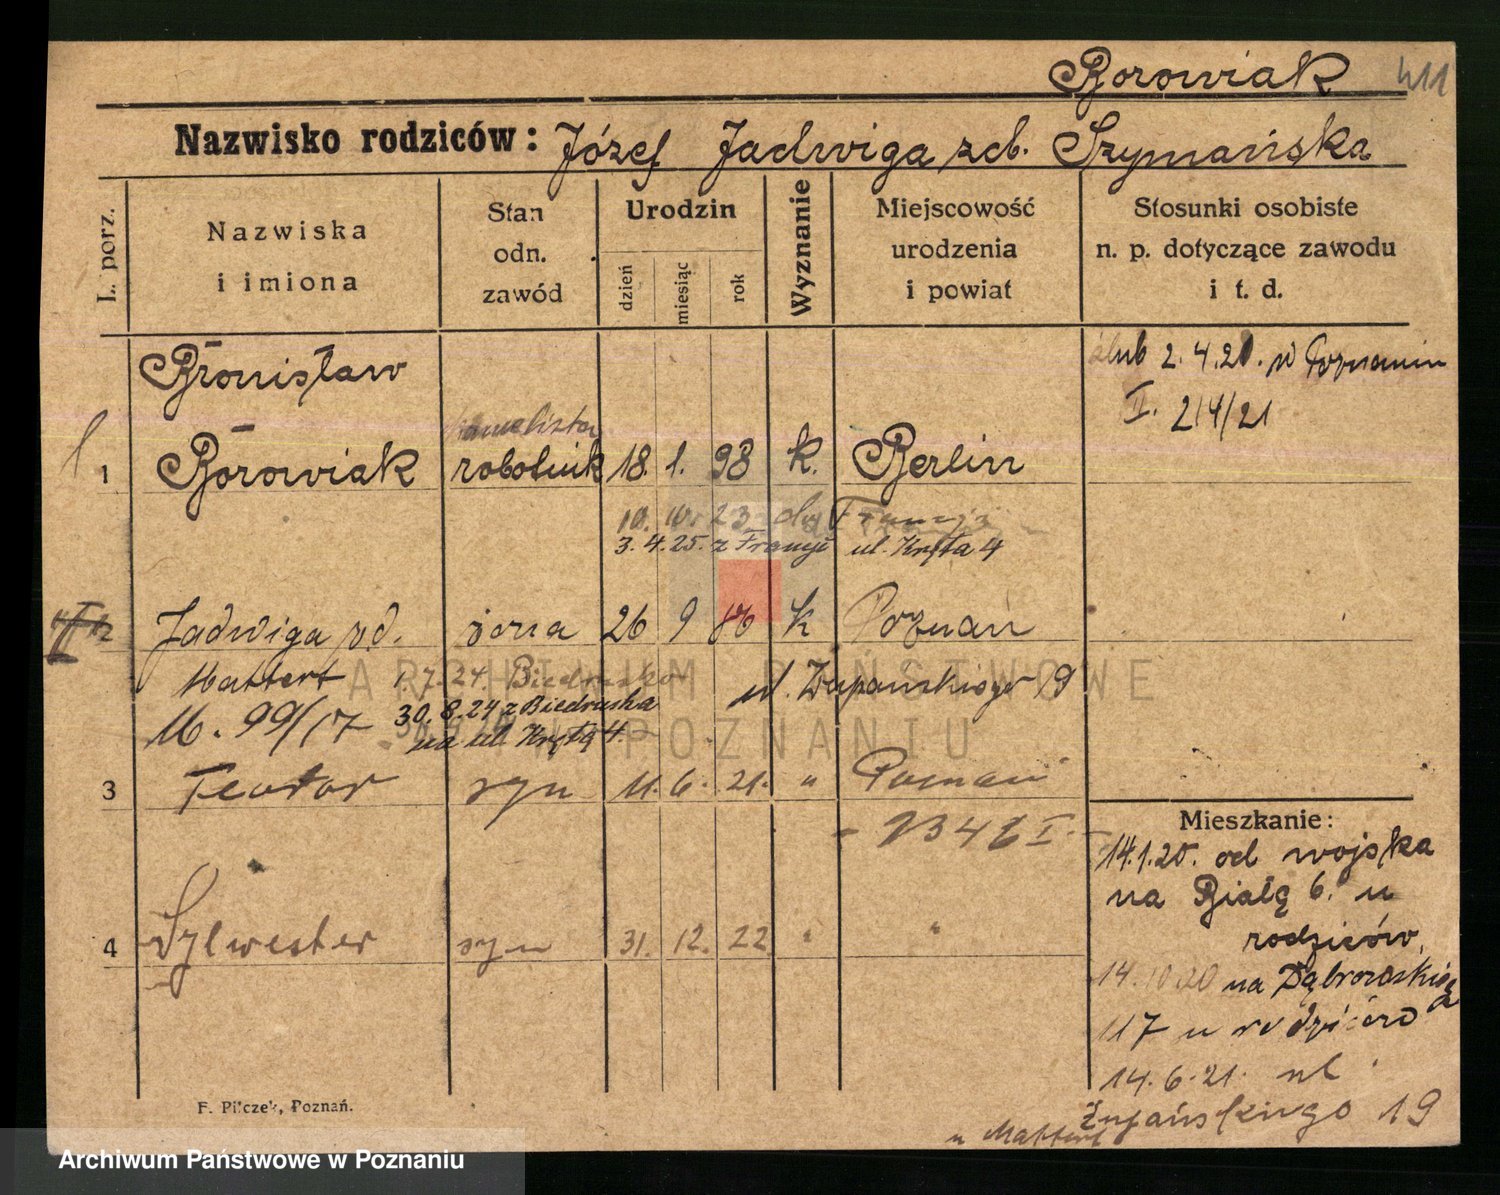 Borowiak 411
Nazwisko rodziców: Józef Jadwiga zeb. Szymańska
L. porz.
Nazwiska
i imiona
Stan
odn.
zawód
Urodzin
dzień
miesiąc
rok
Wyznanie
Miejscowość
urodzenia
i powiat
Stosunki osobiste
n. p. dotyczące zawodu
i t. d.
Bronisław
ślub 2.4.21. w Poznaniu
II. 214/21
1 Borowiak robotnik 18. 1. 98 k. Berlin
10. 10. 23 do Francji
3. 4. 25. z Francji ul. Kręta 4
2 Jadwiga żona 26 9 k Poznań
Mattert 1.7.24. Biedrusko ul. Żupańskiego 19
M. 99/17 30.8.24 z Biedruska
na ul. Krętą 4.
3 Teodor syn 11. 6. 21. " Poznań
2346 I.
4 Sylwester syn 31. 12. 22 " "
Mieszkanie:
14.1.20. od wojska
na Białą 6. u
rodziców,
14.10.20 na Dąbrowskiego
117 u rodziców
14.6.21. ul.
Żupańskiego 19
u Mattert
F. Pilczek, Poznań.
ARCHIWUM PAŃSTWOWE
W POZNANIU
Archiwum Państwowe w Poznaniu